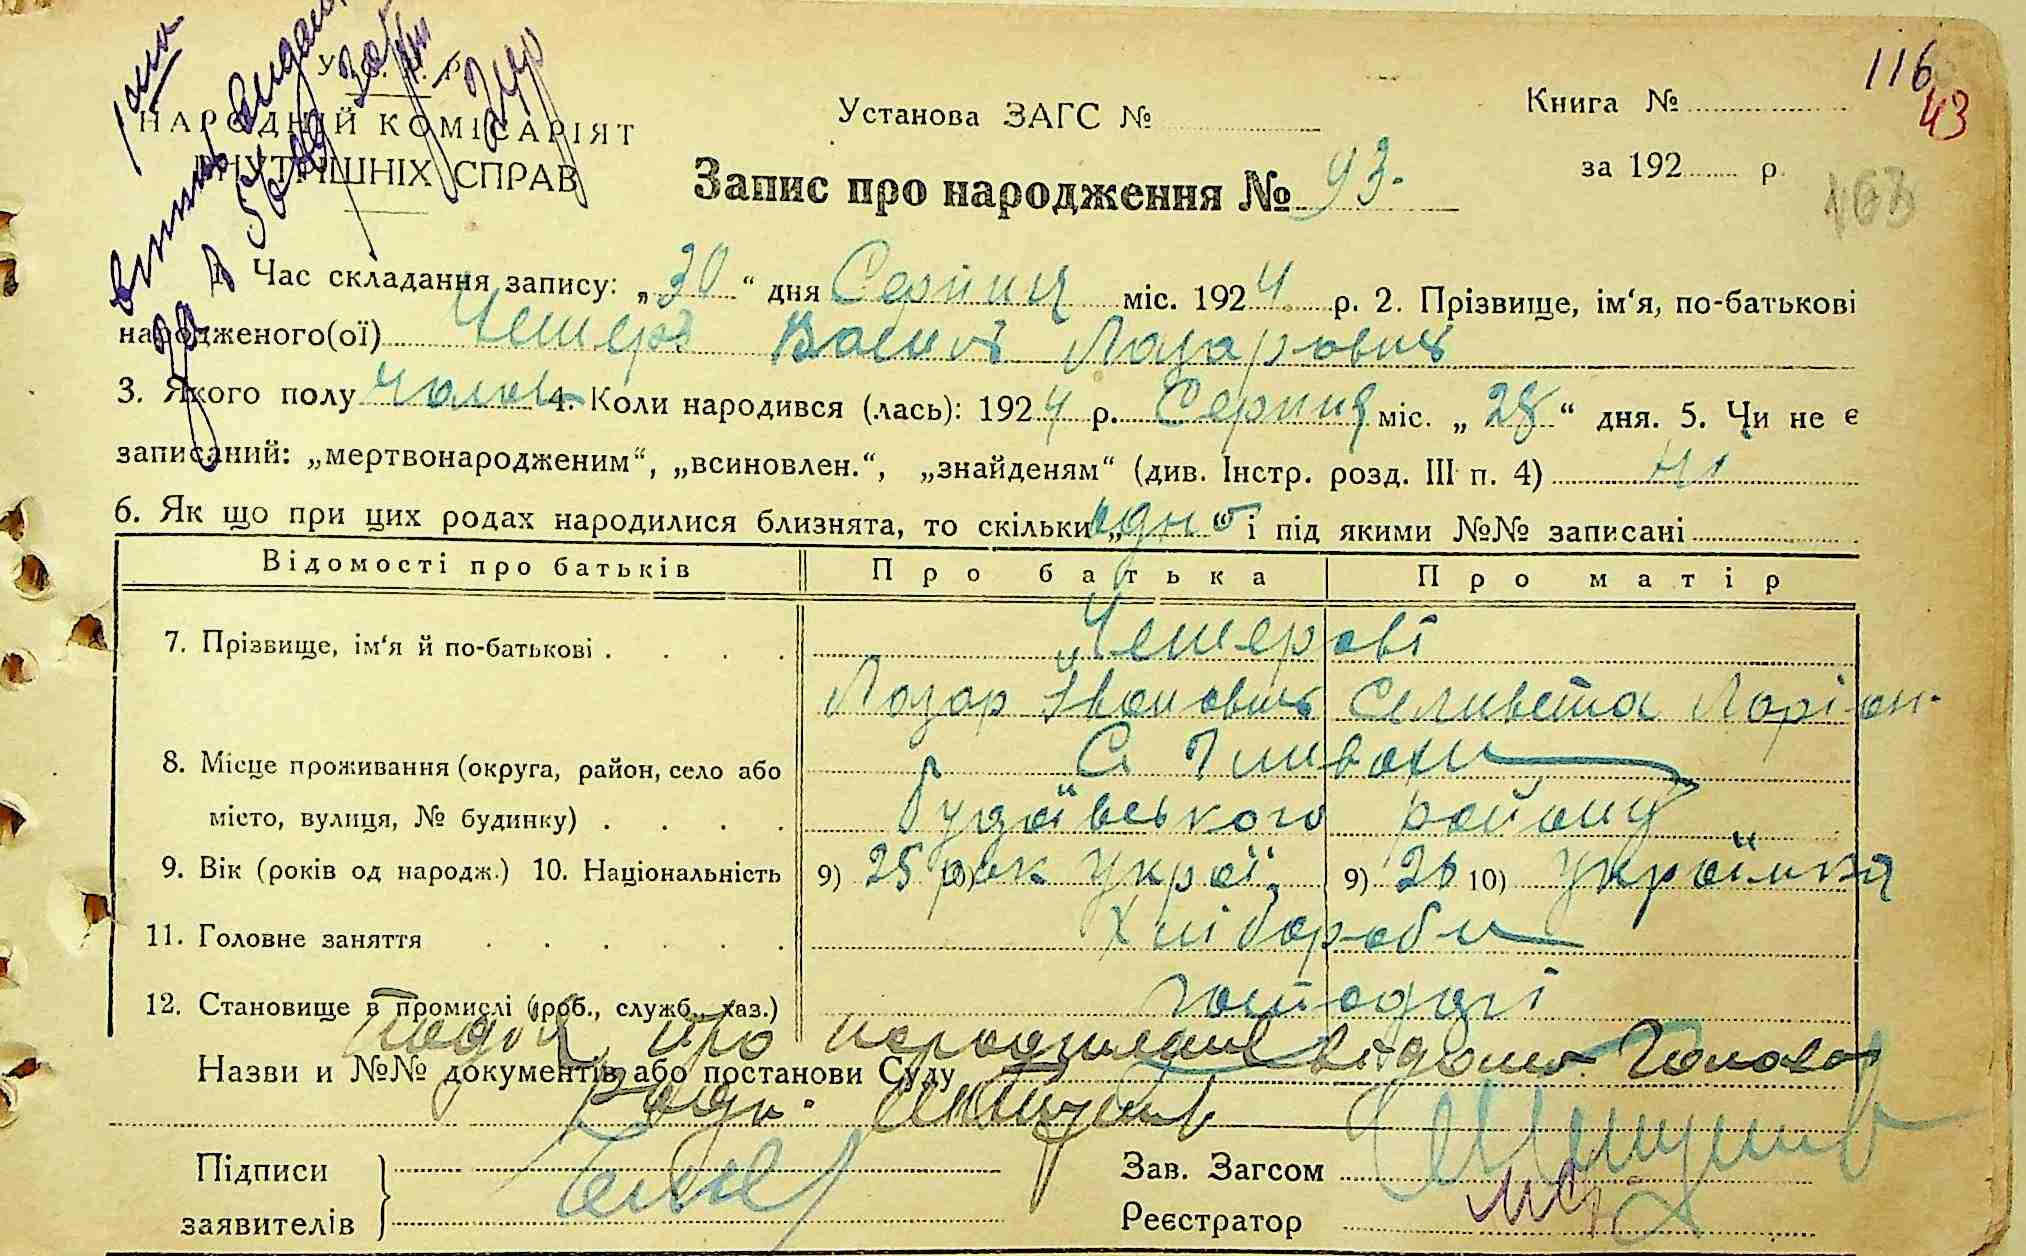 116
43
У. С. Р. Р.
НАРОДНІЙ КОМІСАРІЯТ
ВНУТРІШНІХ СПРАВ
Установа ЗАГС №
Книга №
за 192 р.
Запис про народження № 93.
103
1. Час складання запису: „30“ дня Серпня міс. 1924 р. 2. Прізвище, ім‘я, по-батькові
народженого(ої) Василь Лазарович
3. Якого полу чолов 4. Коли народився (лась): 1924 р. Серпня міс. „28“ дня. 5. Чи не є
записаний: „мертвонародженим“, „всиновлен.“, „знайденям“ (див. Інстр. розд. III п. 4) Ні
6. Як що при цих родах народилися близнята, то скільки „одно“ і під якими №№ записані
Відомості про батьків Про батька Про матір
7. Прізвище, ім‘я й по-батькові
Лазар Іванович Селивета Ларіон.
8. Місце проживання (округа, район, село або С.
місто, вулиця, № будинку) Будаївського району
9. Вік (років од народж.) 10. Національність 9) 25 рок Украї, 9) 26 10) Українка
11. Головне заняття Хлібороби
12. Становище в промислі (роб., служб., хаз.) господарі
про народження Голова
Назви и №№ документів або постанови Суду
Підписи
заявителів
Зав. Загсом
Реєстратор